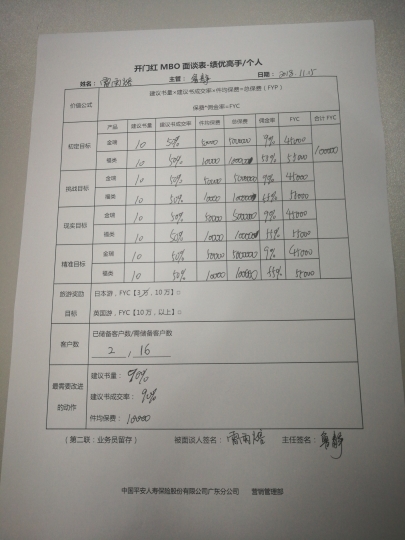 开门红 MBO 面谈表-绩优高手/个人
姓名： 主管： 日期：2018.11.15
价值公式
建议书量*建议书成交率=件均保费=总保费（FYP）
保费*佣金率=FYC
产品 建议书量 建议书成交率 件均保费 总保费 佣金率 FYC 合计 FYC
初定目标 金瑞 10 50% 50000 9% 45000 100000
福类 10 50% 10000 55% 55000
挑战目标 金瑞 10 50% 50000 500000 9% 45000
福类 10 50% 10000 55% 55000
现实目标 金瑞 10 50% 50000 500000 9% 45000
福类 10 50% 10000 55% 55000
精准目标 金瑞 10 50% 50000 500000 9% 45000
福类 10 50% 10000 100000 55% 55000
旅游奖励目标
日本游，FYC【3万，10万】○
英国游，FYC【10万，以上】○
客户数
已储备客户数/需储备客户数
2，16
最需要改进的动作
建议书量：90%
建议书成交率：90%
件均保费：10000
（第二联：业务员留存） 被面谈人签名： 主任签名：
中国平安人寿保险股份有限公司广东分公司 营销管理部